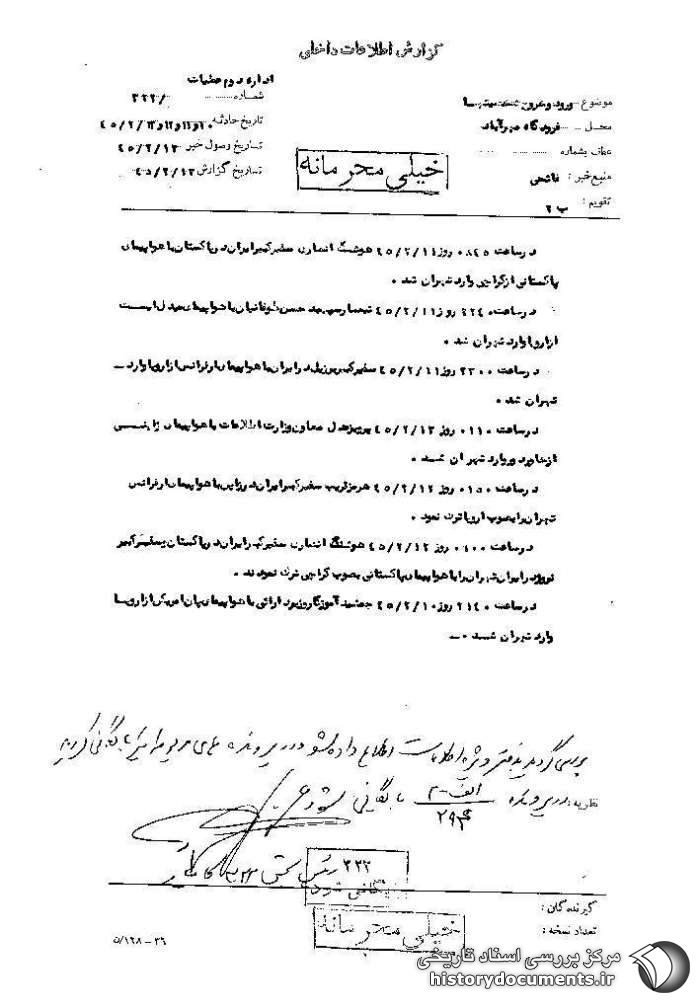 گزارش اطلاعات داخلی
اداره دوم عملیات
موضوع ورود و خروج شخصیتها
شماره /۳۲۲
محل فرودگاه مهرآباد
تاریخ حادثه ۱۰و۱۱و۱۲و۱۳/۲/۴۵
عطف بشماره
تاریخ وصول خبر ۴۵/۲/۱۳
منبع خبر :
تاریخ گزارش ۴۵/۲/۱۳
تقویم : ب ۲
خیلی محرمانه
درساعت ۰۸۴۵ روز ۴۵/۲/۱۱ هوشنگ انصاری سفیرکبیر ایران در پاکستان با هواپیمای
پاکستانی از کراچی وارد تهران شد .
درساعت ۲۲۴۰ روز ۴۵/۲/۱۱ تیمسار سپهبد حسن طوفانیان با هواپیمای میدل ایست
از اروپا وارد تهران شد .
درساعت ۲۳۰۰ روز ۴۵/۲/۱۱ سفیرکبیر برزیل در ایران با هواپیمای ارفرانس از اروپا وارد ــ
تهران شد .
درساعت ۰۱۱۰ روز ۴۵/۲/۱۳ پرویز عدل معاون وزارت اطلاعات با هواپیمای ژاپنی
از خاور دور وارد تهران شد .
درساعت ۰۱۵۰ روز ۴۵/۲/۱۲ هرمز قریب سفیرکبیر ایران در ژاپن با هواپیمای ارفرانس
تهران را بصوب اروپا ترک نمود .
درساعت ۰۴۰۰ روز ۴۵/۲/۱۲ هوشنگ انصاری سفیرکبیر ایران در پاکستان و سفیرکبیر
نروژ در ایران تهران را با هواپیمای پاکستانی بصوب کراچی ترک نمودند .
درساعت ۲۱۴۰ روز ۴۵/۲/۱۰ جمشید آموزگار وزیر دارائی با هواپیمای پان امریکن از اروپا
وارد تهران شد .ــ
بررسی گردید بدفتر ویژه اطلاعات اطلاع داده شود در پرونده های مربوطه بایگانی گردد
نظریه : در پرونده الف-۳ / ۲۹۴ بایگانی شود
رئیس بخش ۳۲۲
بایگانی شود
گیرندگان :
تعداد نسخه :
خیلی محرمانه
۳۶ – ۵/۱۲۸
مرکز بررسی اسناد تاریخی
historydocuments.ir